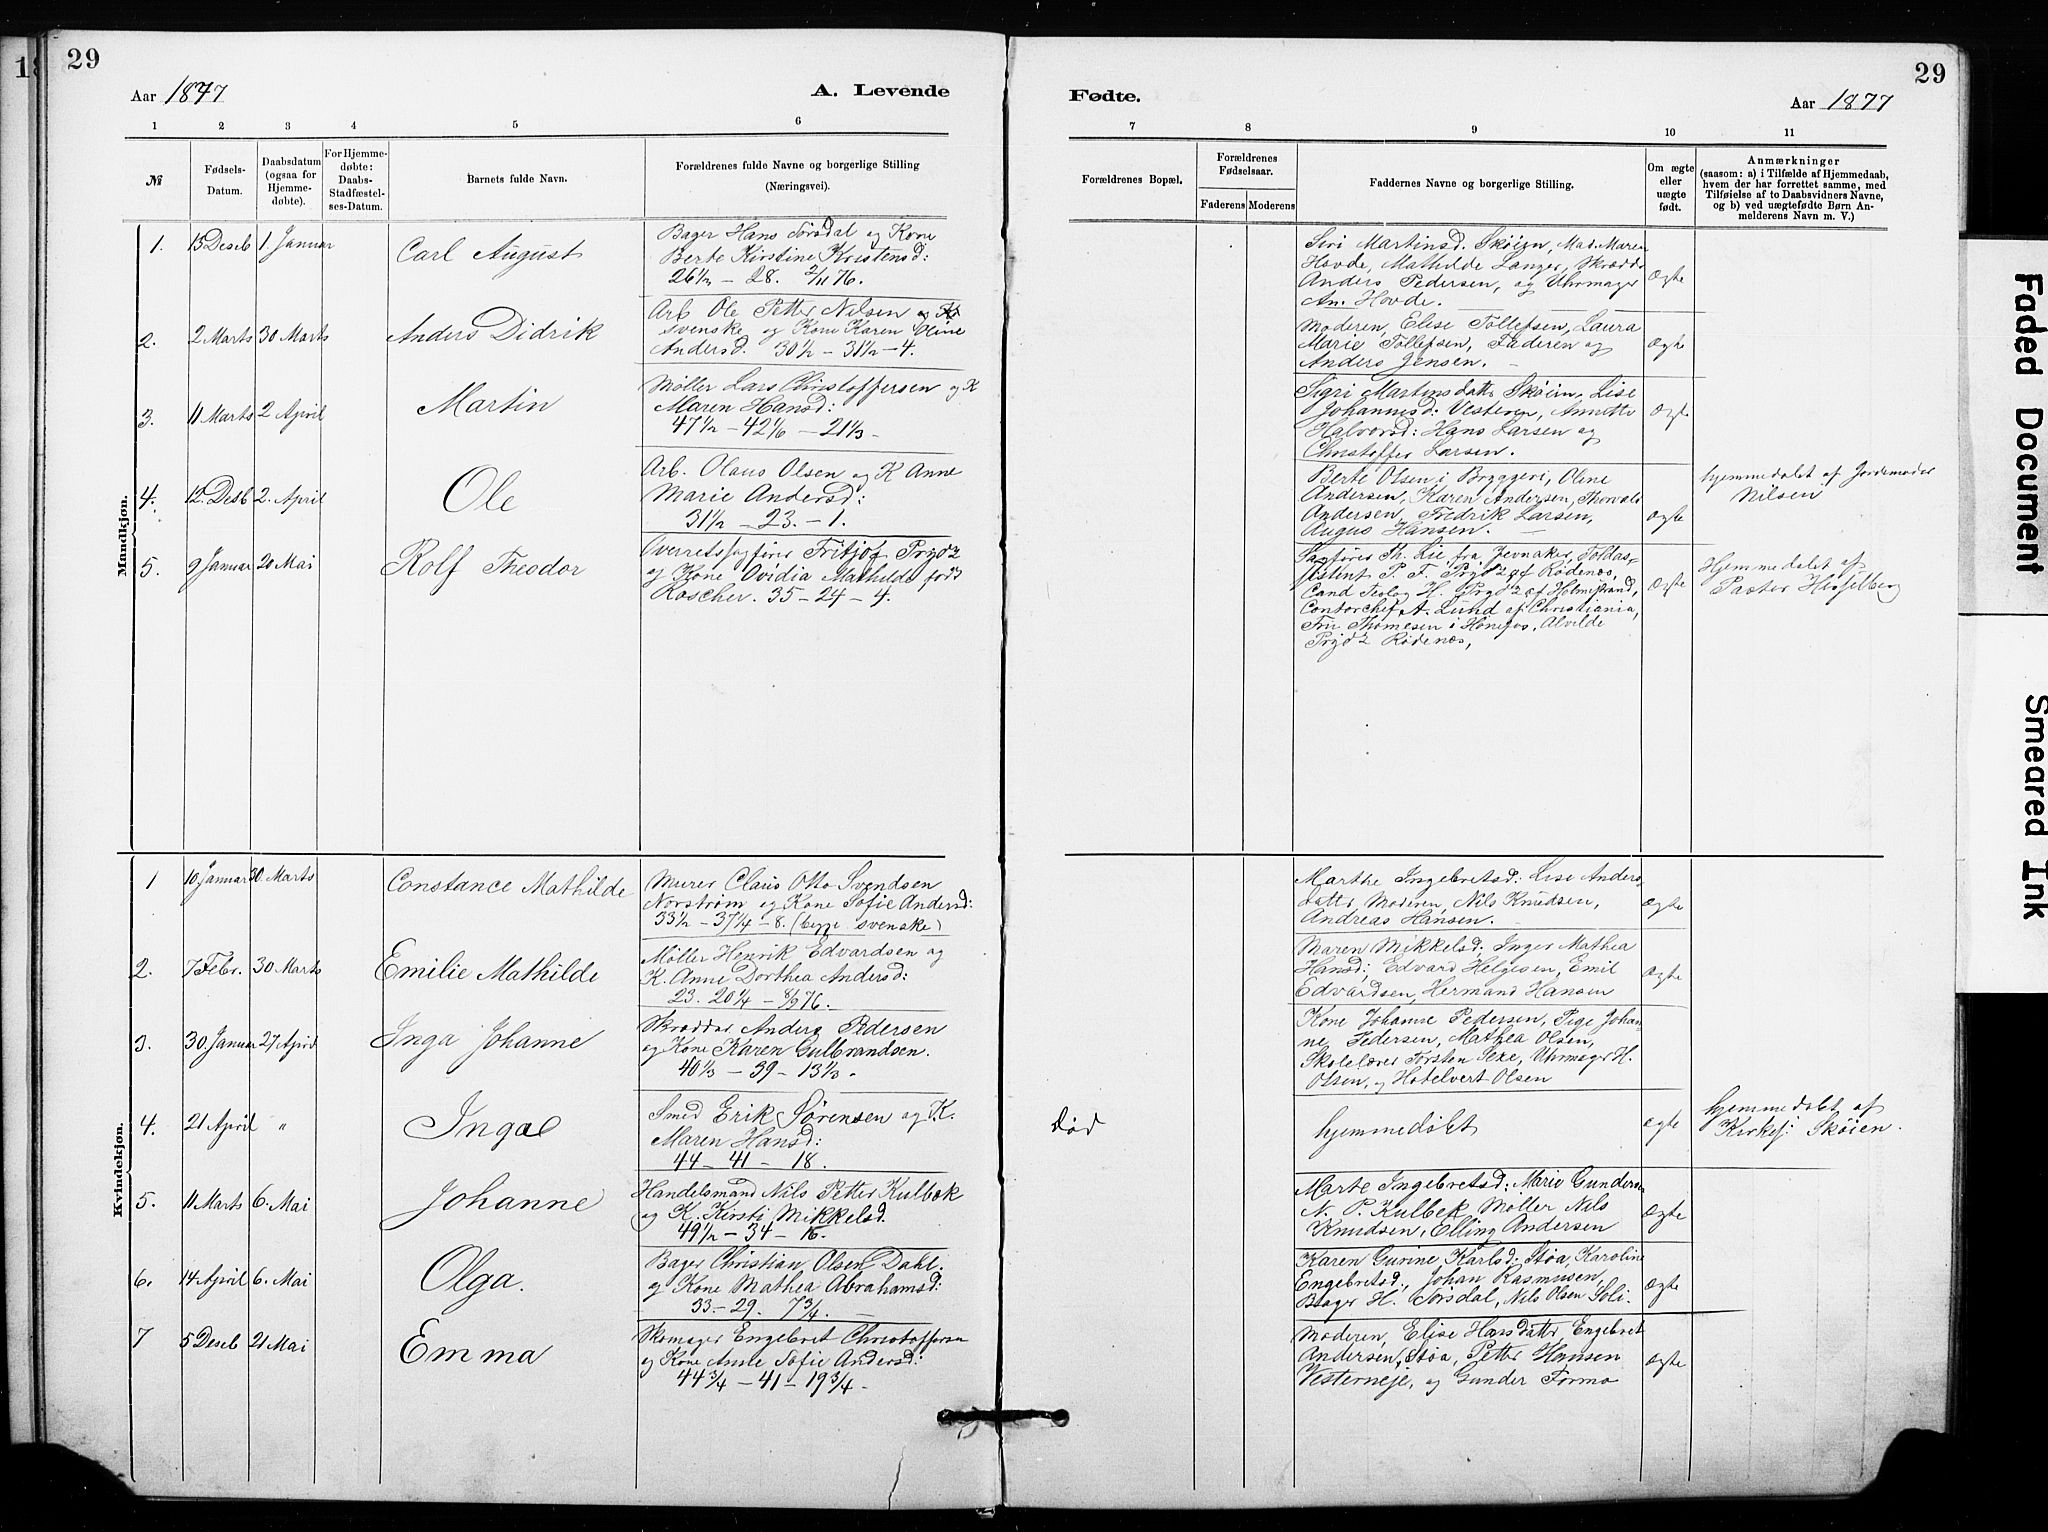 29
Aar 1877
A. Levende
1 2 3 4 5 6
№
Fødsels-Datum.
Daabsdatum (ogsaa for Hjemmedøbte).
For Hjemmedøbte: Daabs-Stadfæstelses-Datum.
Barnets fulde Navn.
Forældrenes fulde Navne og borgerlige Stilling
(Næringsvei).
Mandkjøn.
1. 15 Desb 1. Januar Carl August
Bager Hans Torsdal og Kone
Berte Kirstine Kristensd:
26½ - 28. 2/11 76.
2. 2 Marts 30 Marts Anders Didrik
Arb Ole Petter Nilsen
svenske og Kone Karen Oline
Andersd. 30½ - 31½ - 4.
3. 11 Marts 2 April Martin
Møller Lars Christoffersen og K
Maren Hansd:
47½ - 42 1/6 - 21⅓ -
4. 12. Desb 2. April Ole
Arb. Olaus Olsen og K Anne
Marie Andersd:
31½ - 23. - 1.
5. 9 Januar 20 Mai Rolf Theodor
Overretssagfører Fritjof Prydz
og Kone Ovidia Mathilde født
Roscher. 35 - 24 - 4.
Kvindekjøn.
1 10 Januar 30. Marts Constance Mathilde
Murer Claus Otto Svendsen
Norstrøm og Kone Sofie Andersd:
33½ - 37¼ - 8. (begge svenske)
2. 7 Febr. 30 Marts Emilie Mathilde
Møller Henrik Edvardsen og
K. Anne Dorthea Andersd:
23. 20¼ - 8/9 76.
3. 30. Januar 27 April Inga Johanne
Skrædder Anders Pedersen
og Kone Karen Gulbrandsen.
40⅓ - 39 - 13⅓ .
4. 21 April " Inga
Smed Erik Sørensen og K.
Maren Hansd:
44 - 41 - 18.
5. 11 Marts 6. Mai Johanne
Handelsmand Nils Petter Kulbek
og K. Kirsti Mikkelsd.
49½ - 34 - 16.
6. 14 April 6. Mai Olga.
Bager Christian Olsen Dahl.
og Kone Mathea Abrahamsd:
33. - 29. 7¾.
7 5 Desb 21 Mai Emma
Skomager Engebret Christoffersen
og Kone Anne Sofie Andersd:
44¾ - 41 - 19¾.
29
Fødte.
Aar 1877
7 8 9 10 11
Forældrenes Bopæl.
Forældrenes Fødselsaar.
Faderens Moderens
Faddernes Navne og borgerlige Stilling.
Om ægte eller uægte født.
Anmærkninger
(saasom: a) i Tilfælde af Hjemmedaab,
hvem der har forrettet samme, med
Tilføielse af to Daabsvidners Navne,
og b) ved uægtefødte Børn Anmelderens Navn m. V.)
Siri Martinsd. Skøien, Mad. Maren
Hovde, Mathilde Langer, Skrædder
Anders Pedersen, og Uhrmager
An. Hovde.
Ægte
Moderen, Elise Tollefsen, Laura
Marie Tollefsen, Faderen og
Anders Jensen.
Ægte
Sigri Martinsdatter Skøien, Lise
Johannesd: Vesteren, Annette
Halvorsd: Hans Larsen og
Christoffer Larsen.
Ægte
Berte Olsen i Bryggeri, Oline
Andersen, Karen Andersen, Thorvald
Andersen, Fredrik Larsen,
August Hansen.
Ægte
hjemmedøbt af Jordemoder
Nilsen
Sagfører Th. Lie fra Jevnaker, Toldas-
sistent P. F. Prydz af Rødenæs,
Cand Teolog H. Prydz af Holmestrand,
Contorchef A. Lund af Christiania,
Fru Thomesen i Hønefos, Alvilde
Prydz Rødenæs,
Ægte
Hjemmedøbt af
Pastor Hesselberg
Marthe Ingebretsd: Lise Anders-
datter, Moderen, Nils Knudsen,
Andreas Hansen.
Ægte
Maren Mikkelsd; Inger Mathea
Hansd; Edvard Helgesen, Emil
Edvardsen, Hermand Hansen
Ægte
Kone Johanne Pedersen, Pige Johan
ne Pedersen, Mathea Olsen,
Skolelærer Torsten Sexe, Uhrmager H.
Olsen, og Hotelvert Olsen
død
hjemmedøbt
Ægte
hjemmedøbt af
Kirkesj: Skøien.
Marte Ingebretsd: Marie Gunders
N. P. Kulbek Møller Nils
Knudsen, Elling Andersen
Ægte
Karen Gurine Karlsd: Støa, Karoline
Engebretsd., Johan Rasmusen,
Bager H. Torsdal, Nils Olsen Soli.
Ægte
Moderen, Elise Hansdatter, Engebret
Andersen, Støa, Petter Hansen
Vesterneje, og Gunder Formo
Ægte
Faded Document
Smeared Ink